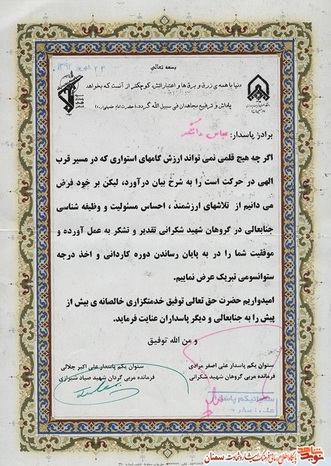 بسمه تعالی
دنیا با همه ی زرق و برق ها و اعتباراتش کوچکتر از آنست که بخواهد
پاداش و ترفیع مجاهدان فی سبیل الله گردد.
برادر پاسدار: عباس
اگر چه هیچ قلمی نمی تواند ارزش گامهای استواری که در مسیر قرب
الهی در حرکت است را به شرح بیان درآورد، لیکن بر خود فرض
می دانیم از تلاشهای ارزشمند، احساس مسئولیت و وظیفه شناسی
جنابعالی در گروهان شهید شکرانی تقدیر و تشکر به عمل آورده و
موفقیت شما را در به پایان رساندن دوره کاردانی و اخذ درجه
ستوانسومی تبریک عرض نماییم.
امیدواریم حضرت حق تعالی توفیق خدمتگزاری خالصانه ی بیش از
پیش را به جنابعالی و دیگر پاسداران عنایت فرماید.
و من الله توفیق
ستوان یکم پاسدار علی اصغر مرادی
فرمانده مربی گروهان شهید شکرانی
ستوان یکم پاسدار علی اکبر جلالی
فرمانده مربی گردان شهید صیاد شیرازی
ستوان یکم پاسدار